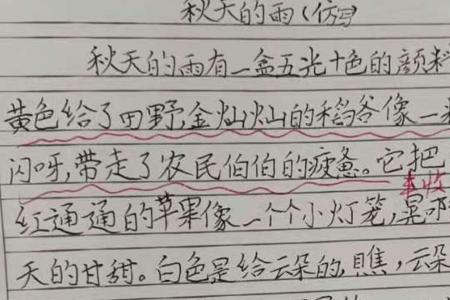 秋天的雨(仿写
秋天的雨有一盒五光十色的颜料
黄色给了田野金灿灿的稻谷像一
闪呀,带走了农民伯伯的疲惫。它把
丰收
红通通的苹果像一个个小灯笼,晃
天的甘甜。白色是给云朵的,瞧,云朵